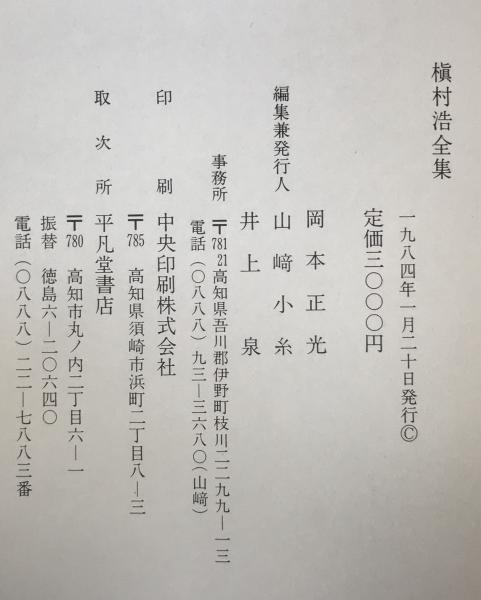 槇村浩全集
一九八四年一月二十日発行Ⓒ
定価三〇〇〇円
岡本正光
編集兼発行人 山﨑小糸
井上泉
事務所 〒781-21 高知県吾川郡伊野町枝川二二九九―一三
電話(〇八八八)九三―三六八〇(山﨑)
印刷 中央印刷株式会社
〒785 高知県須崎市浜町二丁目八―三
取次所 平凡堂書店
〒780 高知市丸ノ内二丁目六―一
振替 徳島六―二〇六四〇
電話(〇八八八)二二―七八八三番